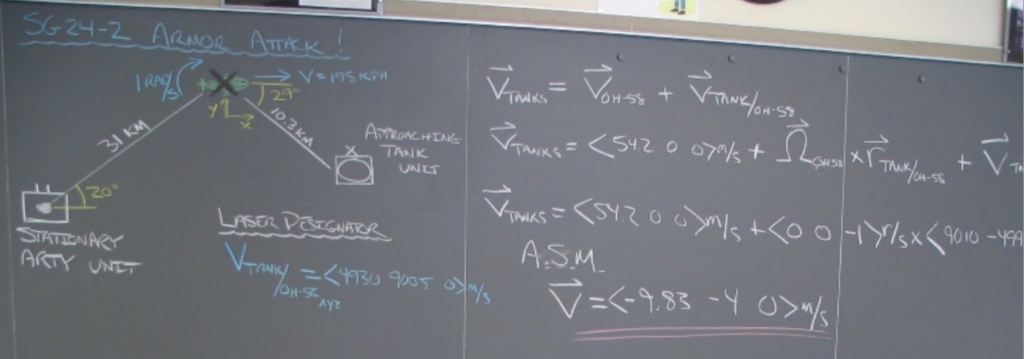 SG24-2 ARMOR ATTACK!
1 RAD/S
V = 195 KPH
29°
Y
X
31 KM
10.3 KM
APPROACHING
TANK
UNIT
20°
STATIONARY
ARTY UNIT
LASER DESIGNATOR
V TANK/OH-58 XYZ = <4930 9005 0> M/S
V TANKS = V OH-58 + V TANK/OH-58
V TANKS = <54.2 0 0> M/S + Ω OH58 x r TANK/OH-58 + V TA
V TANKS = <54.2 0 0> M/S + <0 0 -1> r/s x <9010 -499
A.S.M.
V = <-9.83 -4 0> M/S